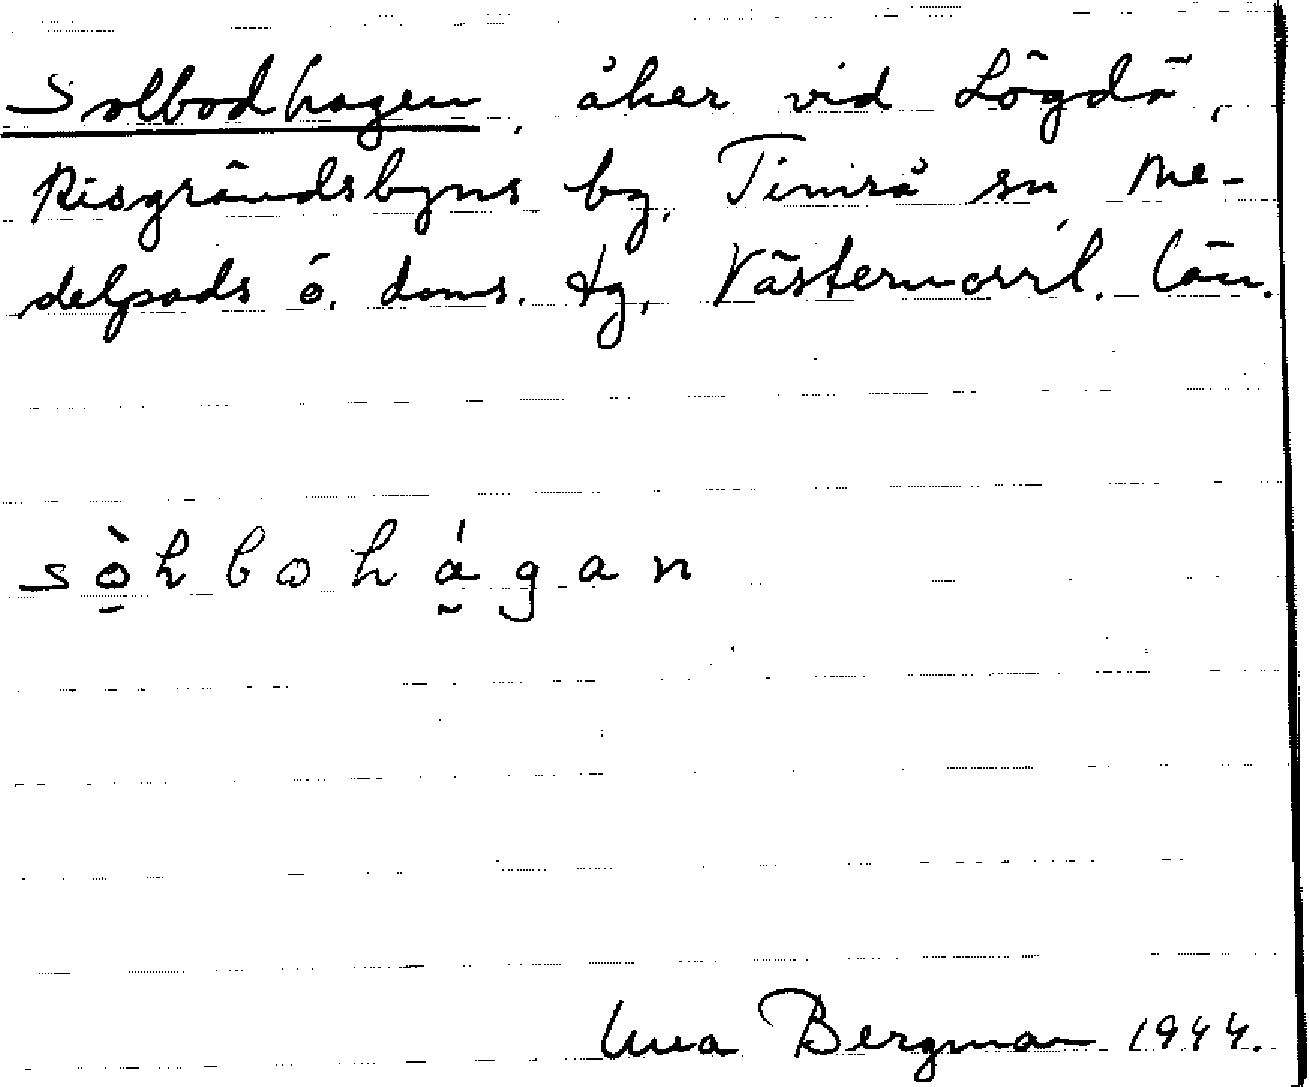 Solbodhagen, åker vid Lögdå,
Risgrändsbyns by, Timrå sn Me-
delpads ö. doms. tg, Västernorrl. län.
sòhbohágan
Bergman 1944.